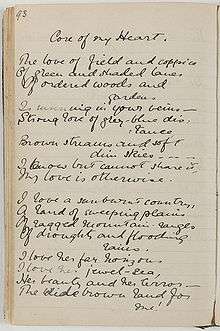 93
Core of my Heart.
The love of field and coppice
Of green and shaded lanes
Of ordered woods and
gardens
Is running in your veins —
Strong love of grey-blue dis-
tance
Brown streams and soft
dim skies
I know but cannot share it
My love is otherwise.
I love a sunburnt country,
A land of sweeping plains
Of ragged mountain ranges
Of droughts and flooding
rains.
I love her far horizons
I love her jewel-sea,
Her beauty and her terror —
The wide brown land for
me!